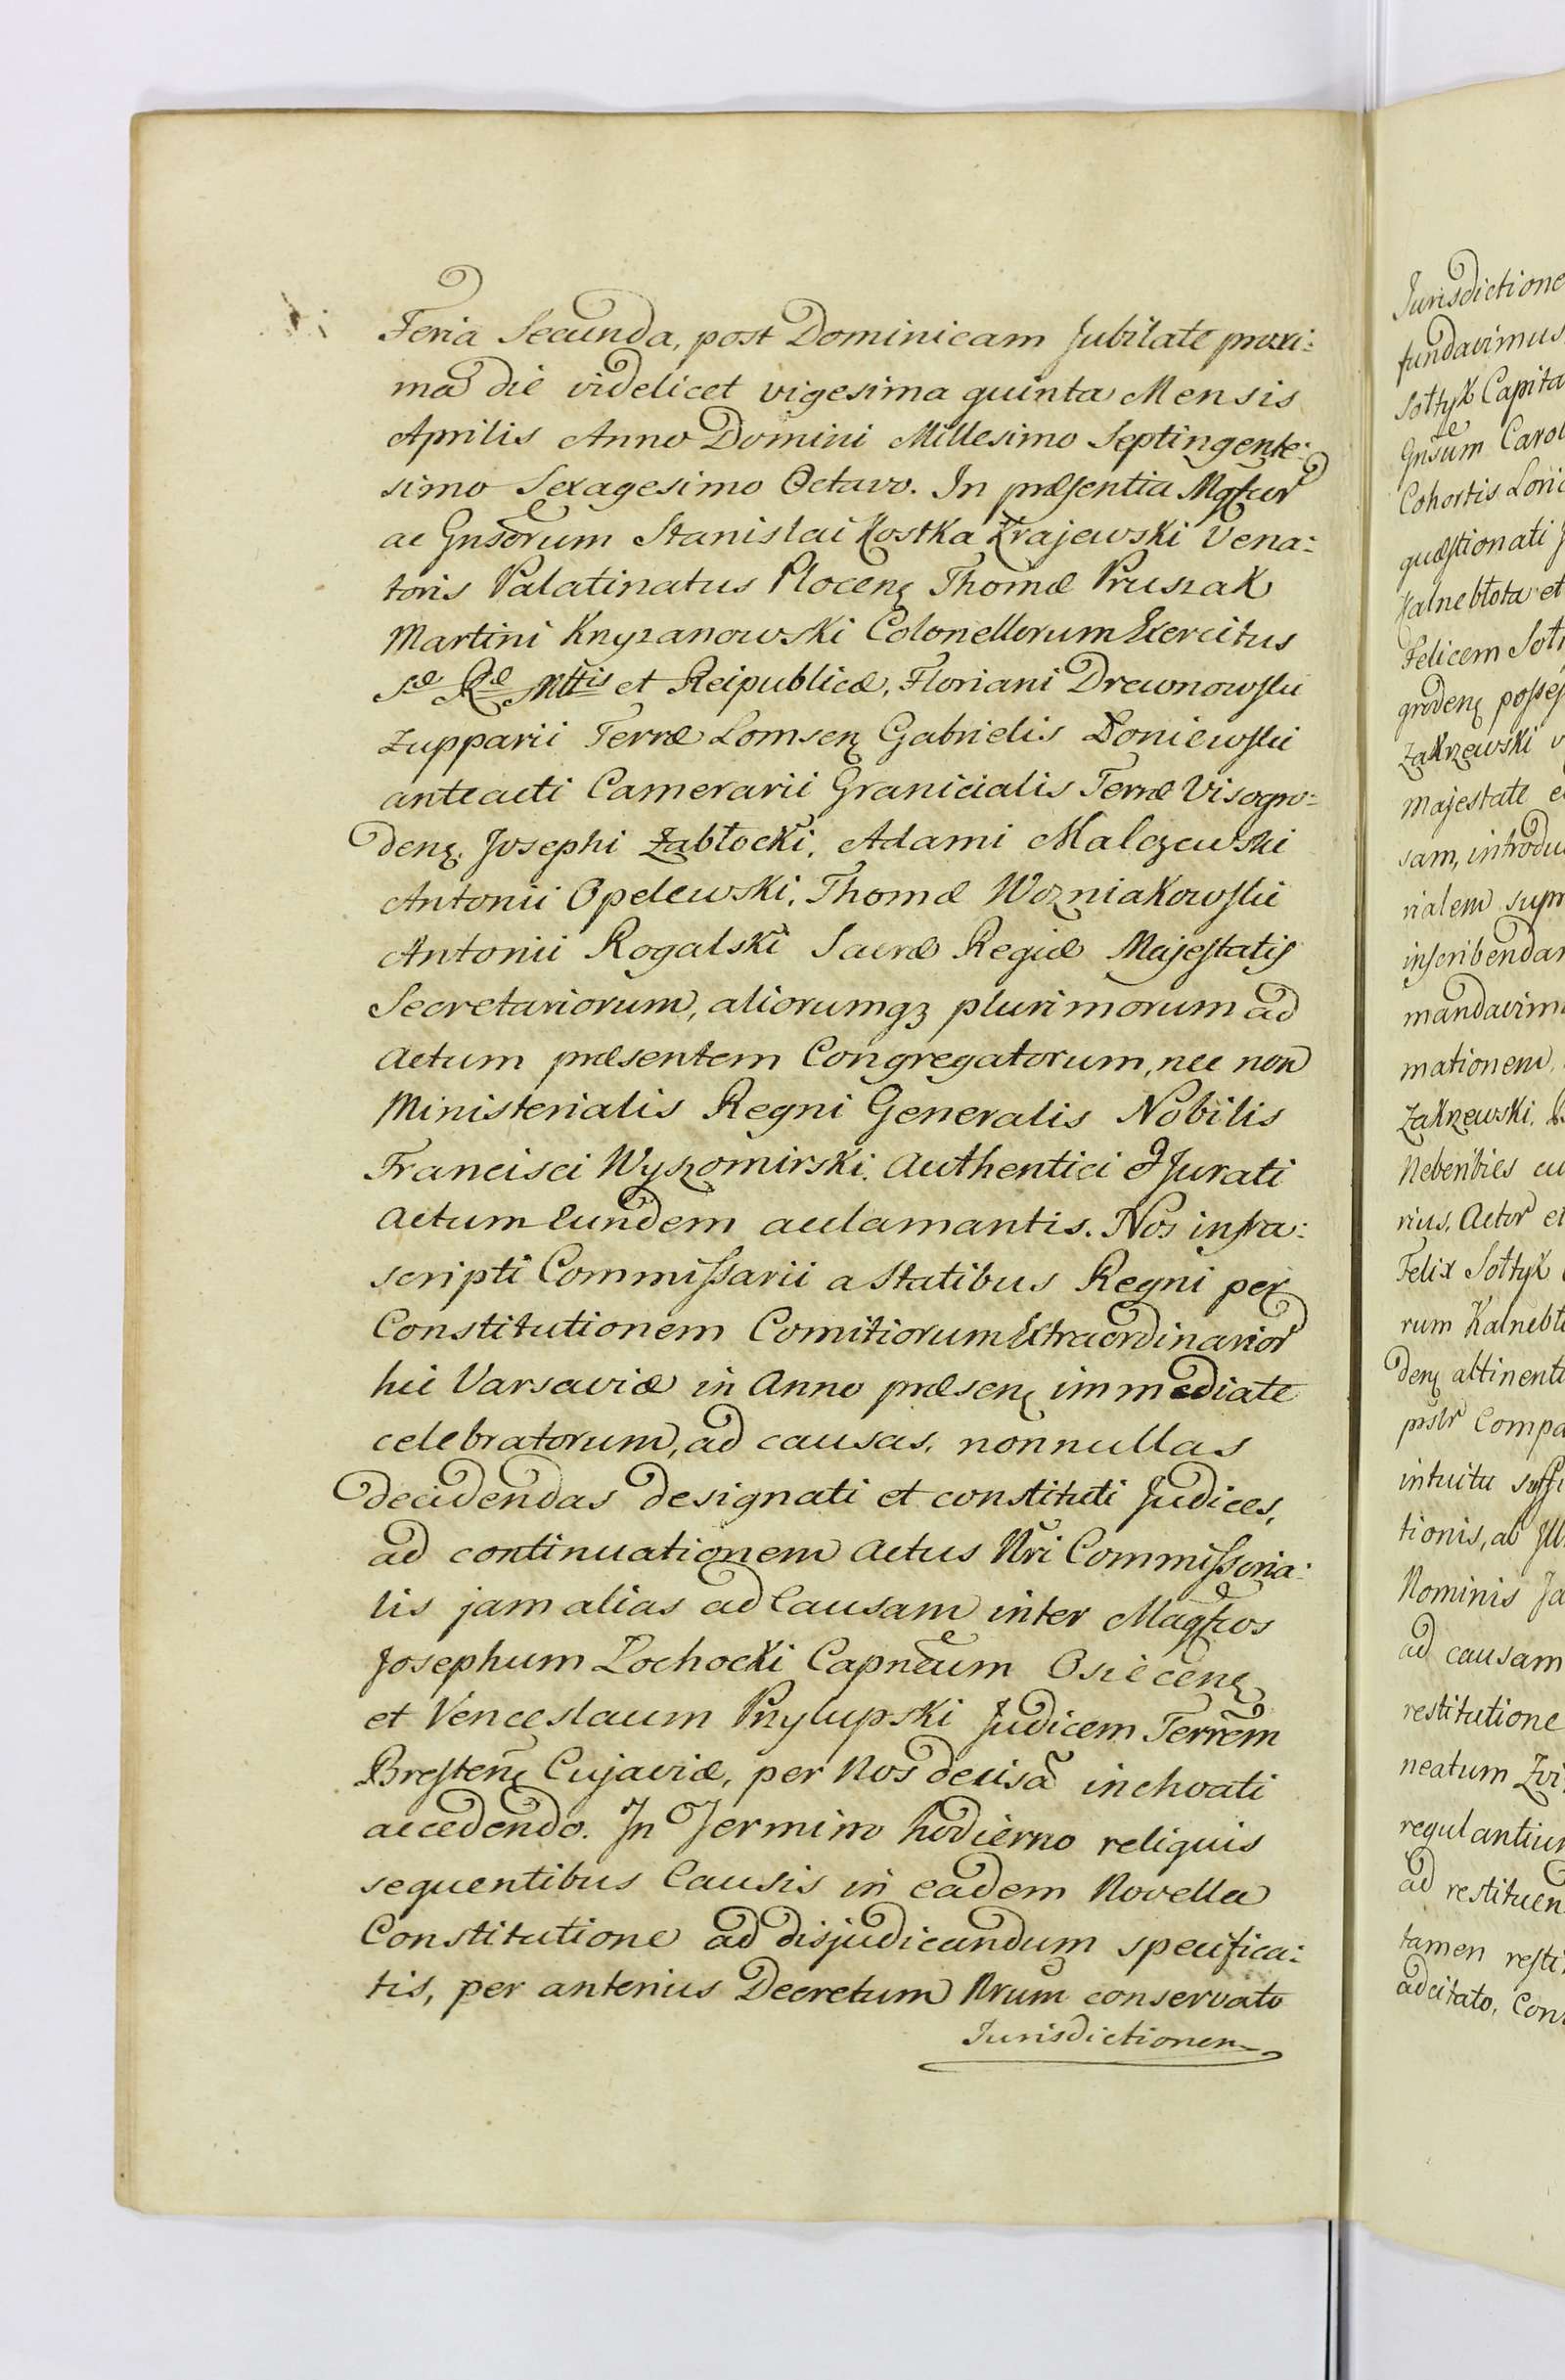 Feria Secunda, post Dominicam Jubilate proxi:
ma die videlicet vigesima quinta Mensis
Aprilis Anno Domini Millesimo Septingente:
simo Sexagesimo Octavo. In præsentia Mgfcor
ac Gnsorum Stanislai Kostka Krajewski Vena:
toris Palatinatus Plocen̄ Thomæ Pruszak
Martini Knyzanowski Colonellorum Exercitus
Sæ Ræ Mttis et Reipublicæ, Floriani Drewnowski
Zupparii Terræ Lomsen̄ Gabrielis Doniewski
anteacti Camerarii Granicialis Terræ Visogro:
den̄. Josephi Zabłocki, Adami Malczewski
Antonii Opelewski, Thomæ Wozniakowski
Antonii Rogalski Sacræ Regiæ Majestatis
Secretariorum, aliorumqȝ plurimorum ad
Actum præsentem Congregatorum, nec non
Ministerialis Regni Generalis Nobilis
Francisci Wyszomirski. Authentici & Jurati
Actum Eundem acclamantis. Nos infra:
scripti Commissarii a Statibus Regni per
Constitutionem Comitiorum Extraordinarior
hic Varsaviæ in Anno præsen̄ immediate
celebratorum, ad causas, nonnullas
decidendas designati et constituti Judices,
ad continuationem Actus Nri Commissoria:
lis jam alias ad Causam inter Magfcos
Josephum Lochocki Capneum Osiecen̄
et Venceslaum Przyłupski Judicem Terrem
Bresten̄ Cujaviæ, per Nos decisã inchoati
accedendo. In Termino hodierno reliquis
sequentibus Causis in eadem Novella
Constitutione ad disjudicandum specifica:
tis, per anterius Decretum Nrum conservato
Jurisdictionem
Jurisdictione
fundavimus
Sołtyk Capita
Gnsum Carol
Cohortis Loric
quæstionati
Kalnebłota et
Felicem Soł
groden̄ posses
Zakrzewski
Majestate
sam, introdu
rialem supr
inscribendam
mandavim
mationem,
Zakrzewski.
Neberibies cu
rius, Actor et
Felix Sołtyk
rum Kalnebł
den̄ attinenti
pnstr Compa
intuitu suffi
tionis, ab Ill
Nominis Ja
ad causam
restitutione
neatum
regulantium
ad restituen
tamen resti
adcitato, Con